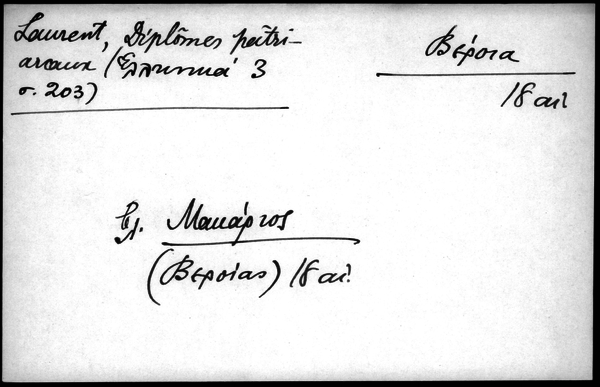 Laurent, Diplômes patri-
arcaux (Ἑλληνικά 3
σ. 203)
Βέροια
18 αἰ.
βλ. Μακάριος
(Βεροίας) 18 αἰ.